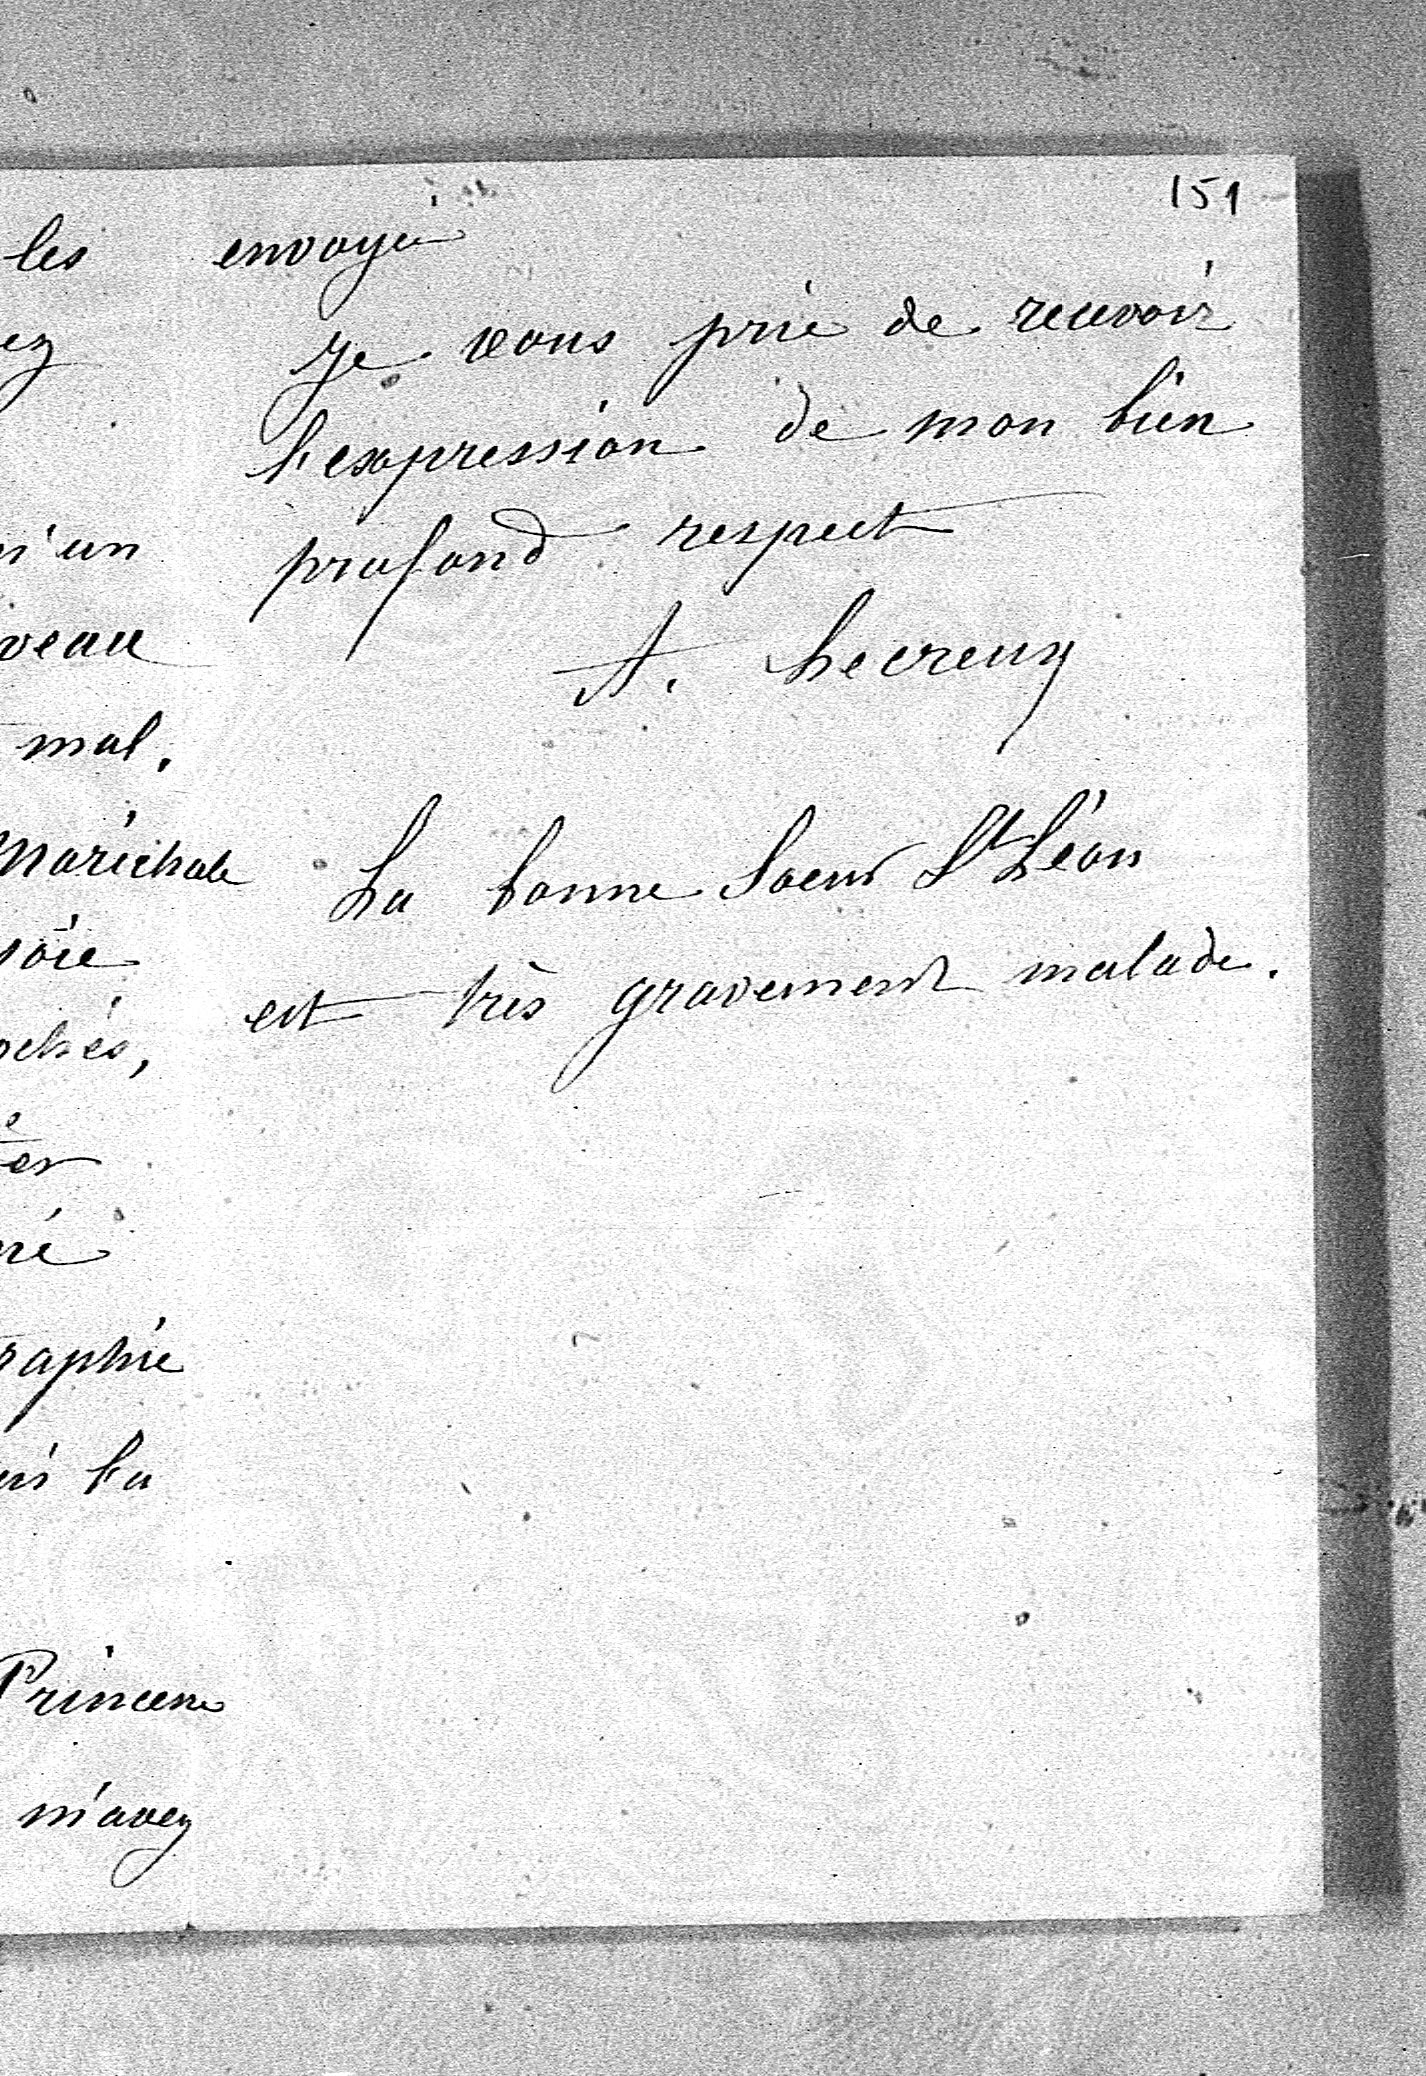 les
ez
n'un
veau
mal.
Maréchale
soie
ochés,
er
né
raphie
la
Princesse
m'avez
151
envoyée
Je vous prie de recevoir
l'expression de mon bien
profond respect
A. Lecreux
La bonne Soeur St Léon
est très gravement malade.